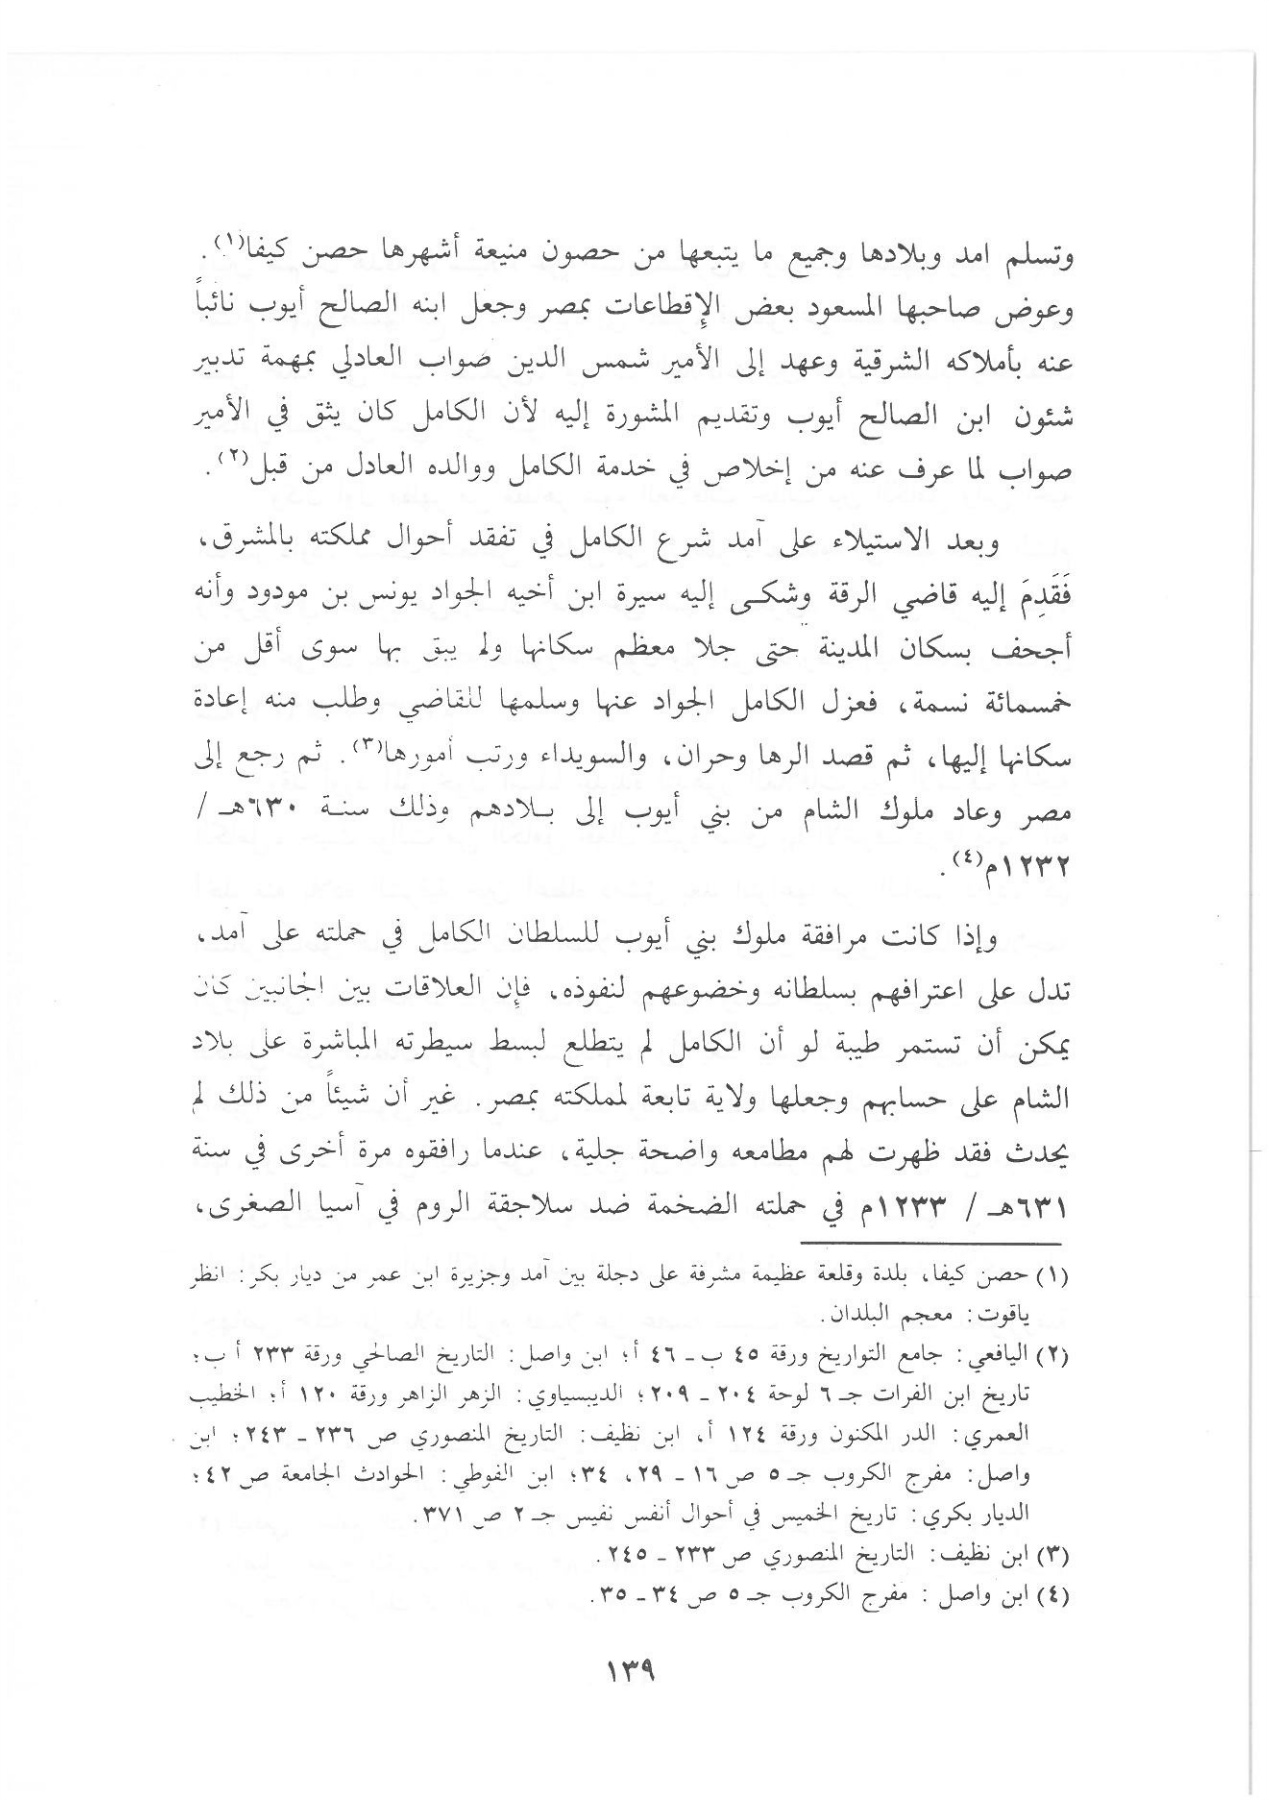 وتسلم امد وبلادها وجميع ما يتبعها من حصون منيعة أشهرها حصن كيفا(١).
وعوض صاحبها المسعود بعض الإقطاعات بمصر وجعل ابنه الصالح أيوب نائباً
عنه بأملاكه الشرقية وعهد إلى الأمير شمس الدين صواب العادلي بمهمة تدبير
شئون ابن الصالح أيوب وتقديم المشورة إليه لأن الكامل كان يثق في الأمير
صواب لما عرف عنه من إخلاص في خدمة الكامل ووالده العادل من قبل(٢).
وبعد الاستيلاء على آمد شرع الكامل في تفقد أحوال مملكته بالمشرق،
فَقَدِمَ إليه قاضي الرقة وشكى إليه سيرة ابن أخيه الجواد يونس بن مودود وأنه
أجحف بسكان المدينة حتى جلا معظم سكانها ولم يبق بها سوى أقل من
خمسمائة نسمة، فعزل الكامل الجواد عنها وسلمها للقاضي وطلب منه إعادة
سكانها إليها، ثم قصد الرها وحران، والسويداء ورتب أمورها(٣). ثم رجع إلى
مصر وعاد ملوك الشام من بني أيوب إلى بلادهم وذلك سنة ٦٣٠هـ /
١٢٣٢م(٤).
وإذا كانت مرافقة ملوك بني أيوب للسلطان الكامل في حملته على آمد،
تدل على اعترافهم بسلطانه وخضوعهم لنفوذه، فإن العلاقات بين الجانبين كان
يمكن أن تستمر طيبة لو أن الكامل لم يتطلع لبسط سيطرته المباشرة على بلاد
الشام على حسابهم وجعلها ولاية تابعة لمملكته بمصر. غير أن شيئاً من ذلك لم
يحدث فقد ظهرت لهم مطامعه واضحة جلية، عندما رافقوه مرة أخرى في سنة
٦٣١هـ / ١٢٣٣م في حملته الضخمة ضد سلاجقة الروم في آسيا الصغرى،
(١) حصن كيفا، بلدة وقلعة عظيمة مشرفة على دجلة بين آمد وجزيرة ابن عمر من ديار بكر: انظر
ياقوت: معجم البلدان.
(٢) اليافعي: جامع التواريخ ورقة ٤٥ ب ـ ٤٦ أ؛ ابن واصل: التاريخ الصالحي ورقة ٢٣٣ أ ب؛
تاريخ ابن الفرات جـ ٦ لوحة ٢٠٤ ـ ٢٠٩؛ الديبسياوي: الزهر الزاهر ورقة ١٢٠ أ؛ الخطيب
العمري: الدر المكنون ورقة ١٢٤ أ، ابن نظيف: التاريخ المنصوري ص ٢٣٦ ـ ٢٤٣؛ ابن
واصل: مفرج الكروب جـ ٥ ص ١٦ ـ ٢٩، ٣٤؛ ابن الفوطي: الحوادث الجامعة ص ٤٢؛
الديار بكري: تاريخ الخميس في أحوال أنفس نفيس جـ ٢ ص ٣٧١.
(٣) ابن نظيف: التاريخ المنصوري ص ٢٣٣ ـ ٢٤٥.
(٤) ابن واصل : مفرج الكروب جـ ٥ ص ٣٤ ـ ٣٥.
١٣٩